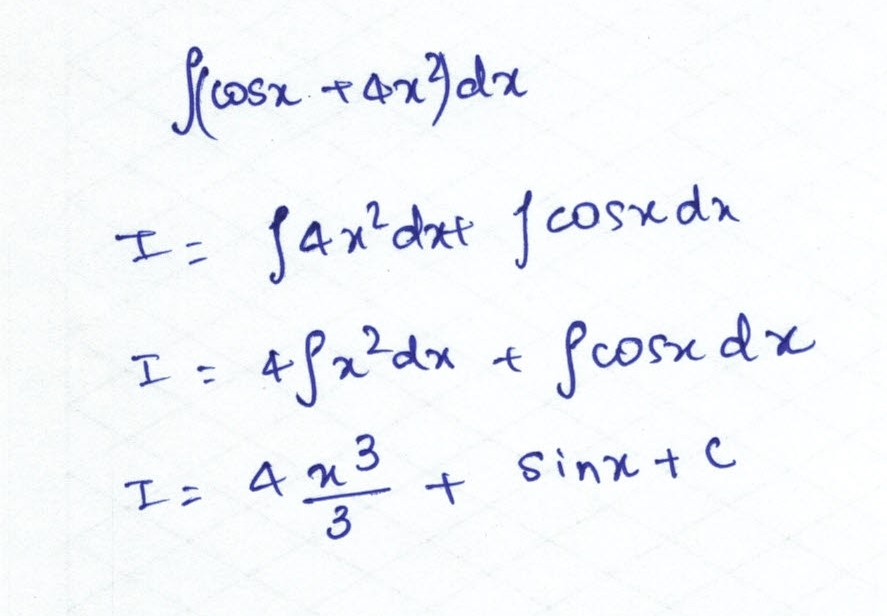 ∫(cosx + 4x²)dx
I = ∫4x²dx + ∫cosxdx
I = 4∫x²dx + ∫cosx dx
I = 4 x³/3 + sinx + c